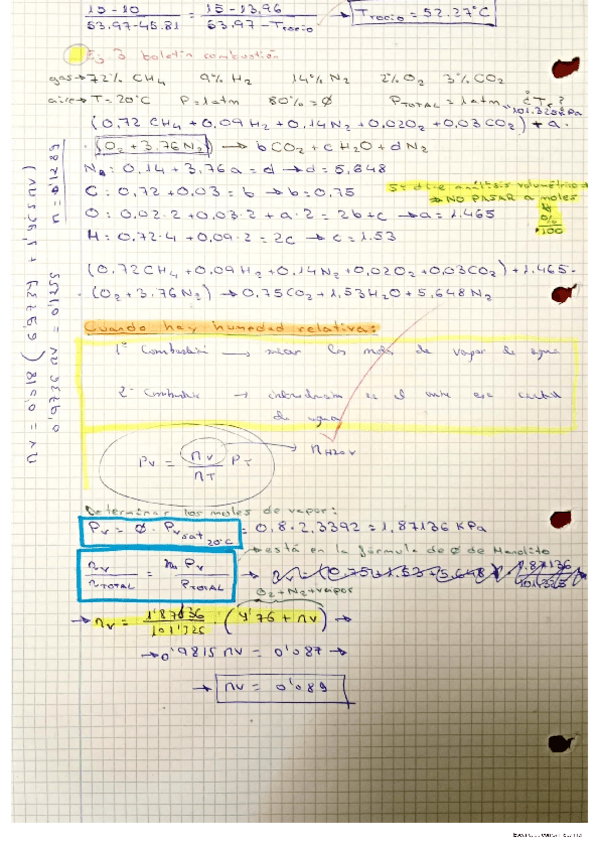 15-10 / 53.97-45.81 = 15-13.96 / 53.97-Trocio → Trocio = 52.27°C
Ej. 3 boletin combustión
gas → 72% CH4 9% H2 14% N2 2% O2 3% CO2
aire → T=20°C P=1atm 80%=Ø PTOTAL=1atm ¿Tr?
101.325kPa
(0,72CH4+0,09H2+0,14N2+0,02O2+0,03CO2)+a·
·(O2+3.76N2) → bCO2+cH2O+dN2
N2: 0,14+3,76a=d → d=5,648
C: 0,72+0,03=b → b=0,75
O: 0,02·2+0,03·2+a·2=2b+c → a=1.465
H: 0,72·4+0,09·2=2c → c=1.53
análisis volumétrico
⇒ NO PASAR a moles
%
100
(0,72CH4+0,09H2+0,14N2+0,02O2+0,03CO2)+1.465·
·(O2+3.76N2) → 0,75CO2+1,53H2O+5,648N2
Cuando hay humedad relativa:
1º Combustión → sacar los moles de vapor de agua
2º → introducimos en el aire esa cantidad
de agua
Pv = nv/nT PT → nH2Ov
Determinar los moles de vapor:
Pv = Ø·Pvsat20°C = 0,8·2,3392 = 1,87136 KPa
→ está en la fórmula de Ø de Mandito
nv/nTOTAL = Pv/PTOTAL → nv = (0,75+1.53+5,648) · 1,87136/101.325
O2+N2+vapor
→ nv = 1'87136/101'325 · (4'76+nv) →
→ 0'9815 nv = 0'087 →
→ nv = 0'089